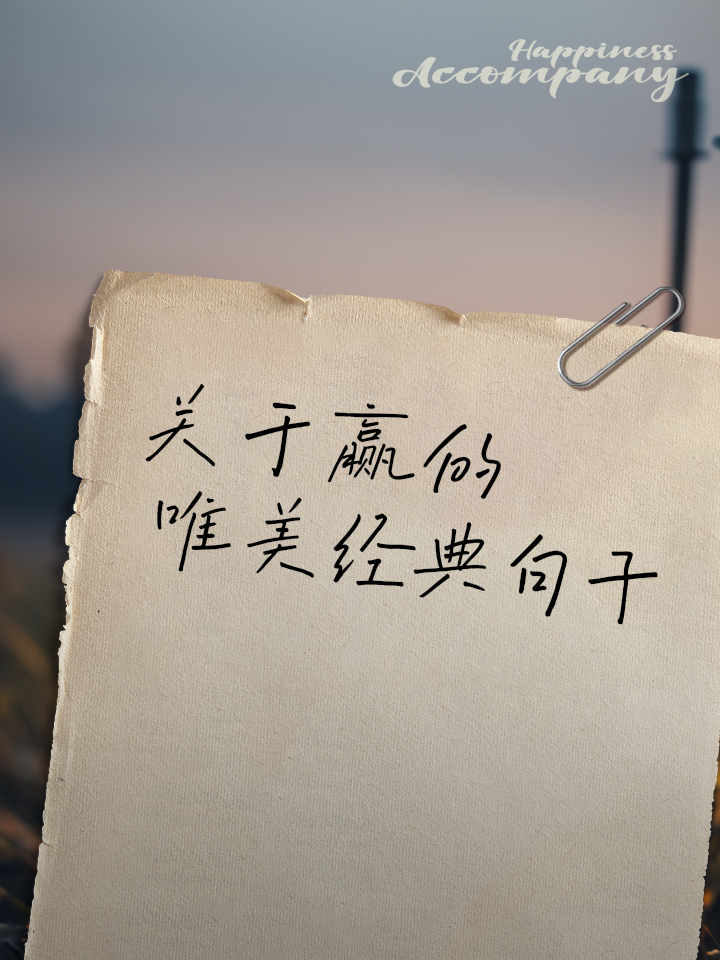 Happiness
Accompany
关于赢的
唯美经典句子